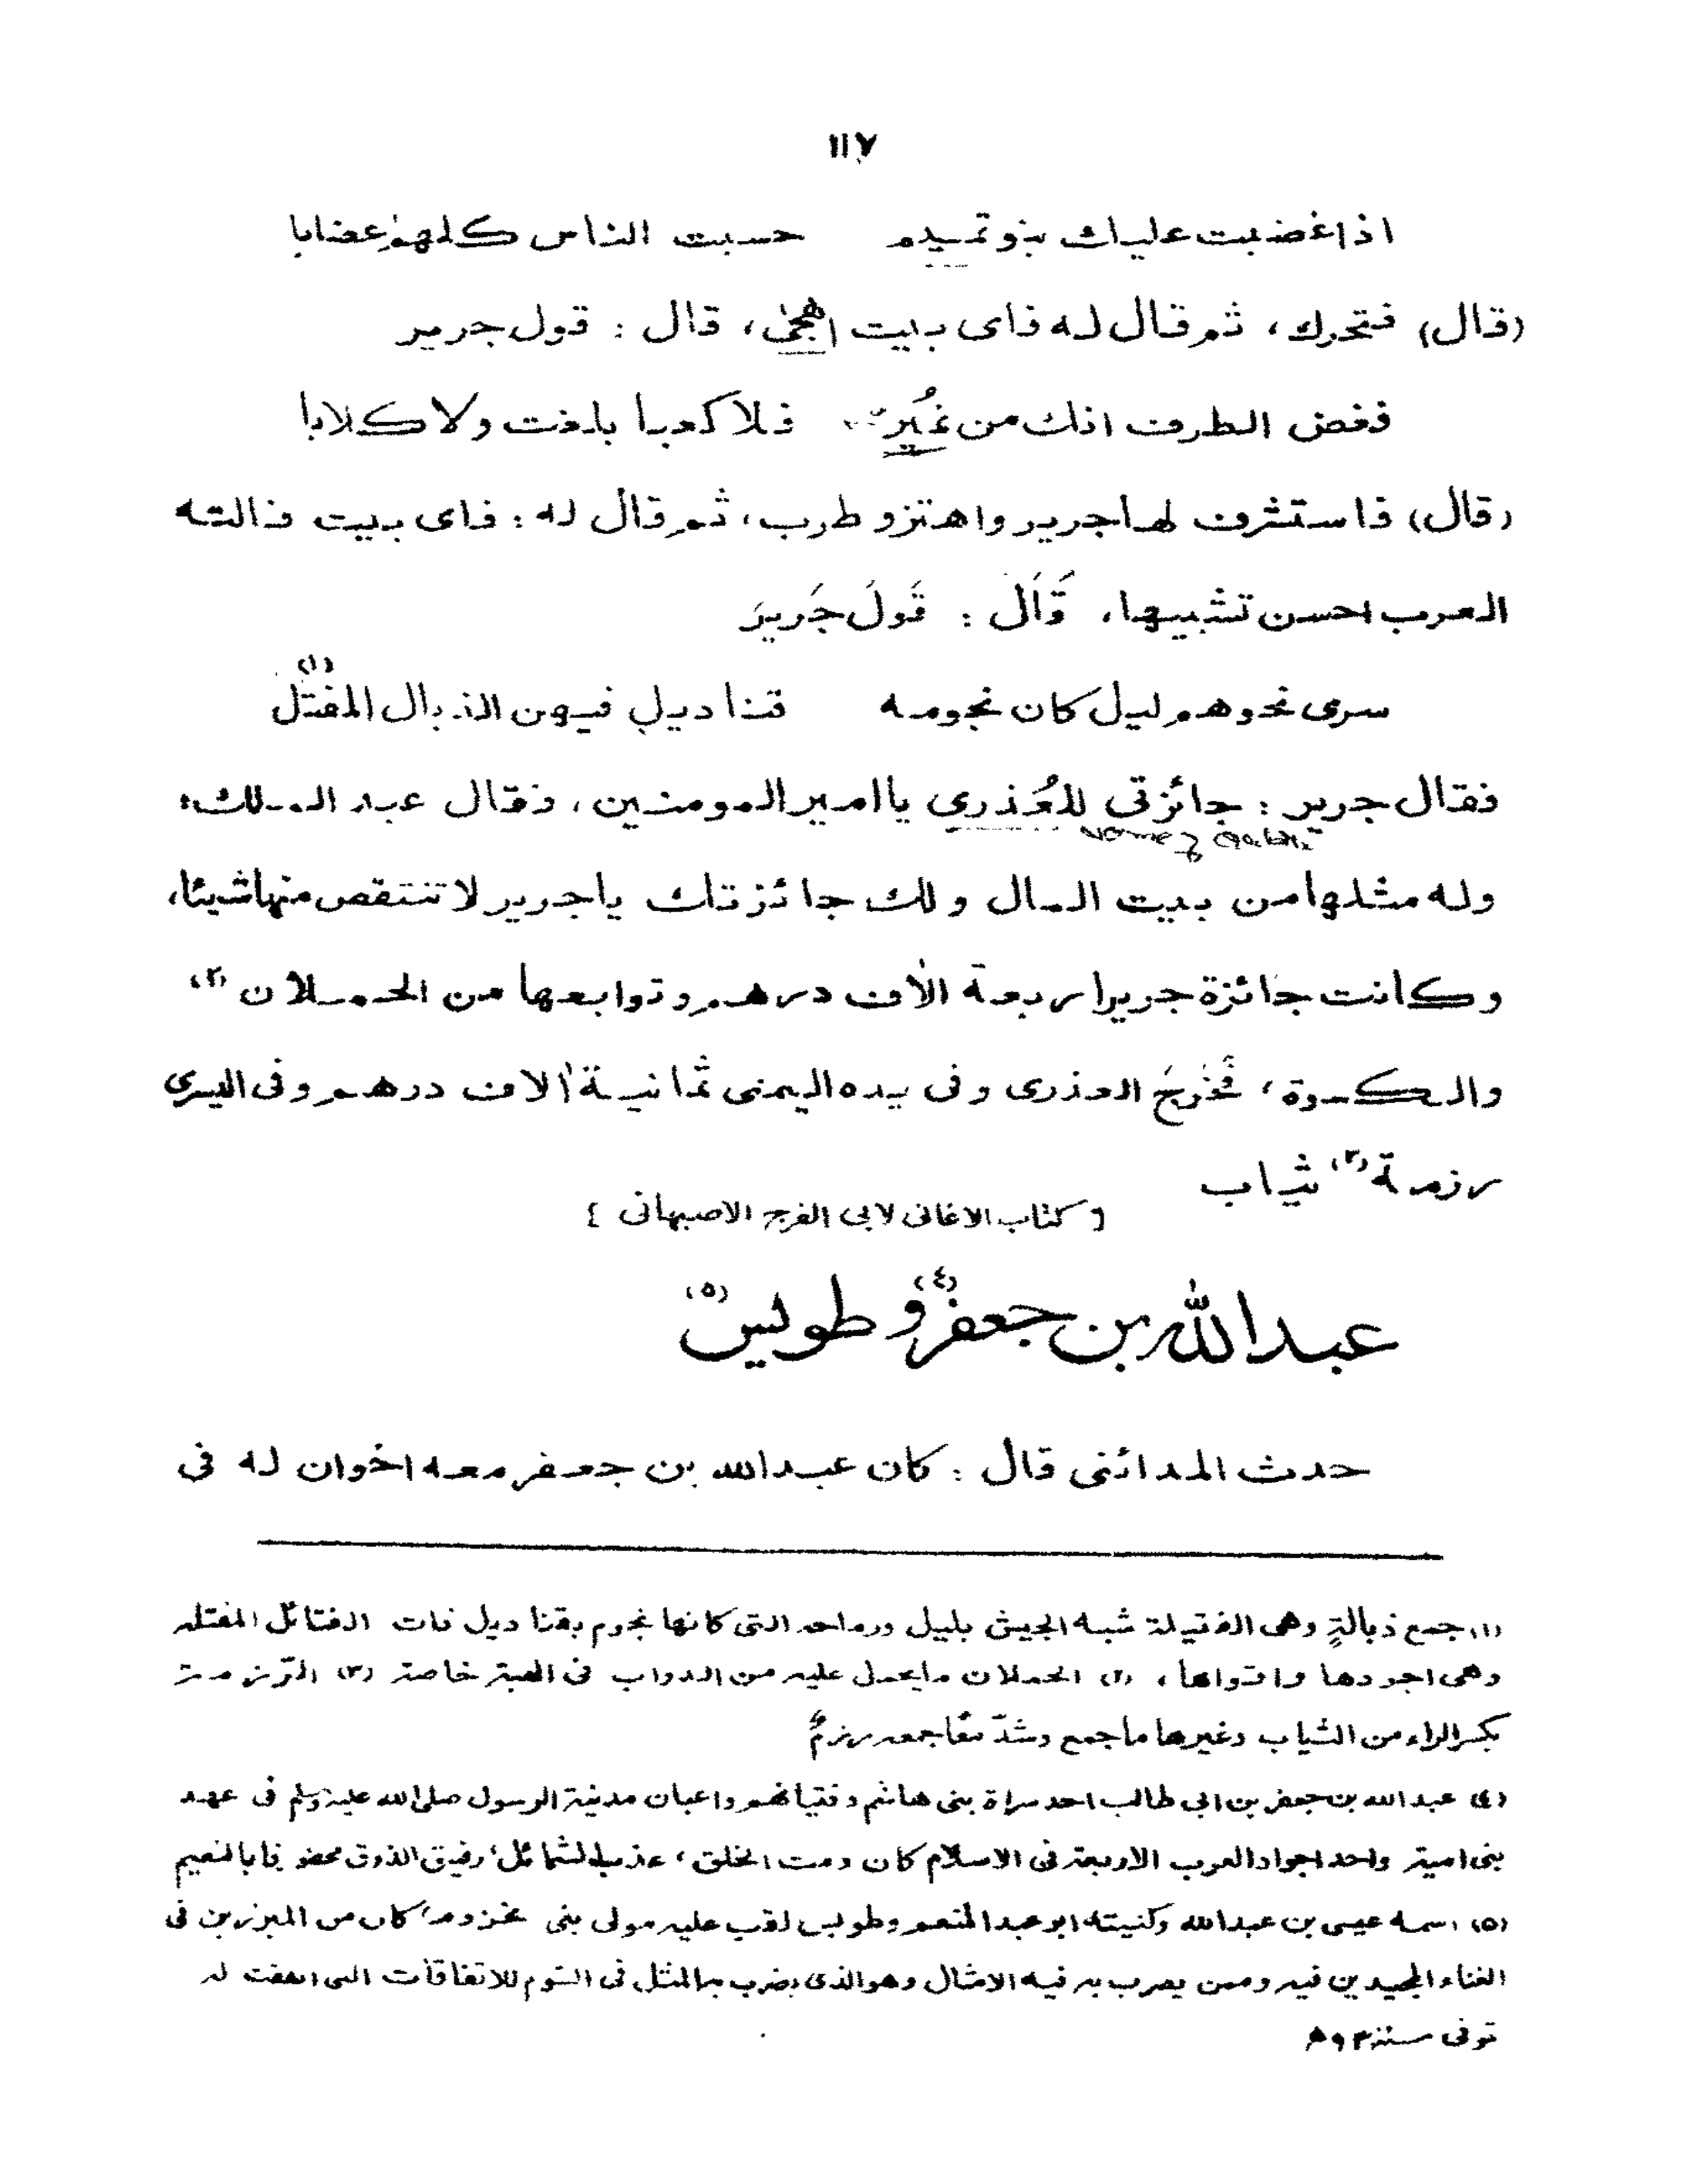 ١١٧
اذا غضبت عليك بنو تميم حسبت الناس كلهم غضابا
(قال) فتحرك، ثم قال له فاى بيت اهجى، قال : قول جرير
فغض الطرف انك من نُمَير فلا كعبا بلغت ولا كلابا
(قال) فاستشرف لها جرير واهتز و طرب، ثم قال له : فاى بيت قالته
العرب احسن تشبيها، قَالَ : قَولَ جَريرَ
سرى نحوهم ليل كان نجومه قناديل فيهن الذبال المفتل (١)
فقال جرير : جائزتى للعُذرى يا امير المومنين، فقال عبد الملك:
Name of Qabila
وله مثلها من بيت المال ولك جائزتك يا جرير لا تنتقص منها شيئا،
وكانت جائزة جرير اربعة الاف درهم وتوابعها من الحملان (٢)
والكسوة، فَخَرجَ العذرى وفى يده اليمنى ثمانية الاف درهم وفى اليسرى
رزمة (٣) ثياب
[ كتاب الاغانى لابى الفرج الاصبهانى ]
عبد الله بن جعفر (٤) و طويس (٥)
حدث المدائنى قال : كان عبد الله بن جعفر معه اخوان له فى
(١) جمع ذبالةٍ وهى الفتيلة شبه الجيش بليل ورماحه التى كانها نجوم بقناديل ذات الفتائل المفتله
وهى اجودها واقواها، (٢) الحملان ما يحمل عليه من الدواب فى الهبة خاصة (٣) الرّزمة
بكسر الراء من الثياب وغيرها ما جمع وشدّ معًا جمعه رزمٌ
(٤) عبد الله بن جعفر بن ابى طالب احد سراة بنى هاشم وفتيانهم واعيان مدينة الرسول صلى الله عليه وسلم فى عهد
بنى امية واحد اجواد العرب الاربعة فى الاسلام كان دمث الخلق، عذب الشمائل، رقيق الذوق محفوفا بالنعيم
(٥) اسمه عيسى بن عبد الله وكنيته ابو عبد المنعم وطويس لقب عليه مولى بنى مخزوم، كان من المبرزين فى
الغناء المجيدين فيه وممن يضرب به فيه الامثال وهو الذى يضرب به المثل فى الشوم للاتفاقات التى اتفقت له
توفى سنة ٩٢ ه